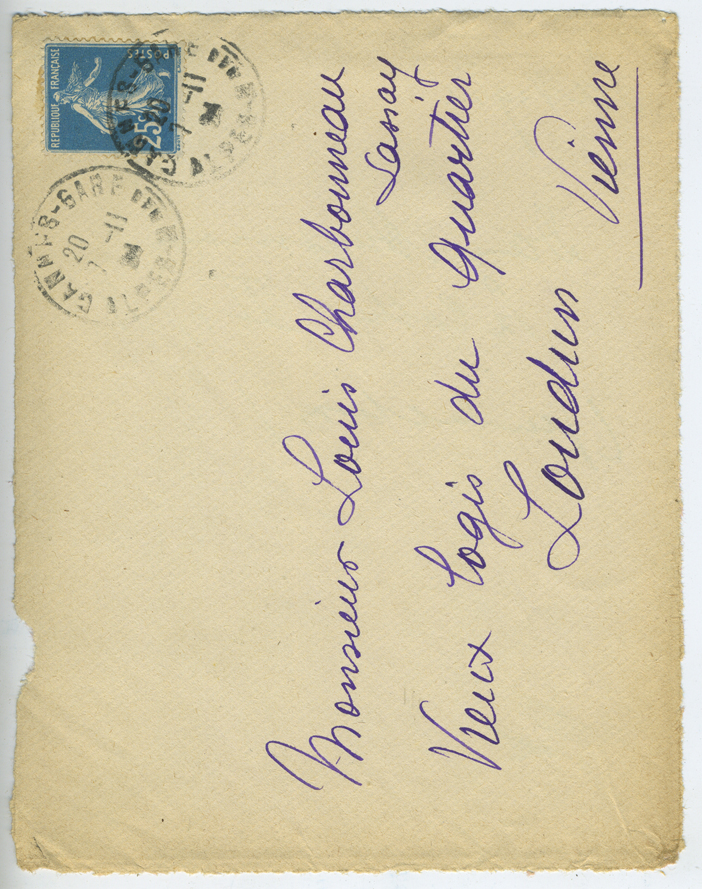 REPUBLIQUE FRANÇAISE
POSTES
25
CANNES-GARE
20
7 -11
CANNES-GARE
20
7 -11
Monsieur Louis Charbonneau
Lassay
Vieux logis du Quartier
Loudun
Vienne